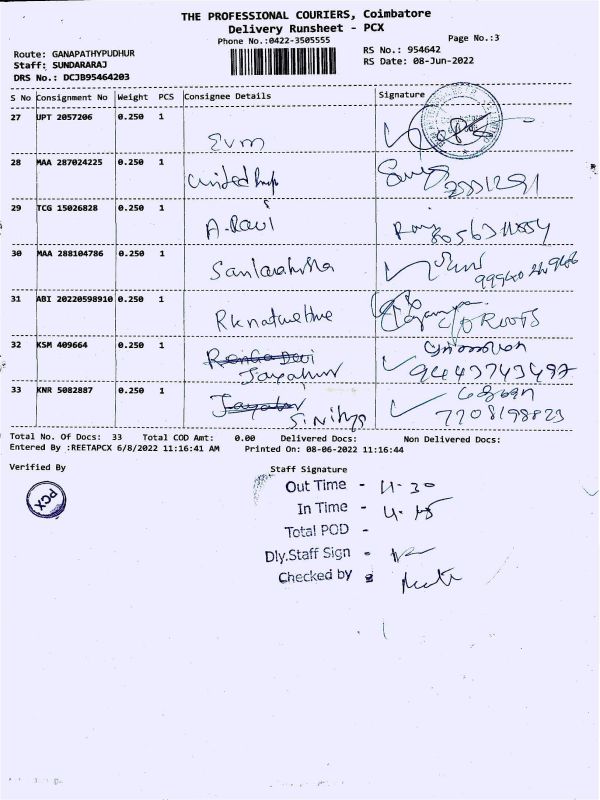 THE PROFESSIONAL COURIERS, Coimbatore
Delivery Runsheet - PCX
Phone No.:0422-3505555
Page No.:3
Route: GANAPATHYPUDHUR
RS No.: 954642
Staff: SUNDARARAJ
RS Date: 08-Jun-2022
DRS No.: DCJB95464203
S No Consignment No Weight PCS Consignee Details Signature
27 UPT 2057206 0.250 1
28 MAA 287024225 0.250 1 United
29 TCG 15026828 0.250 1 A. Ravi
30 MAA 288104786 0.250 1
31 ABI 20220598910 0.250 1 C/O ROOTS
32 KSM 409664 0.250 1 Renga Devi
9443743497
33 KNR 5082887 0.250 1
7708198823
Total No. Of Docs: 33 Total COD Amt: 0.00 Delivered Docs: Non Delivered Docs:
Entered By :REETAPCX 6/8/2022 11:16:41 AM Printed On: 08-06-2022 11:16:44
Verified By Staff Signature
PCX
Out Time - 11-30
In Time - 4-45
Total POD -
Dly.Staff Sign -
Checked by